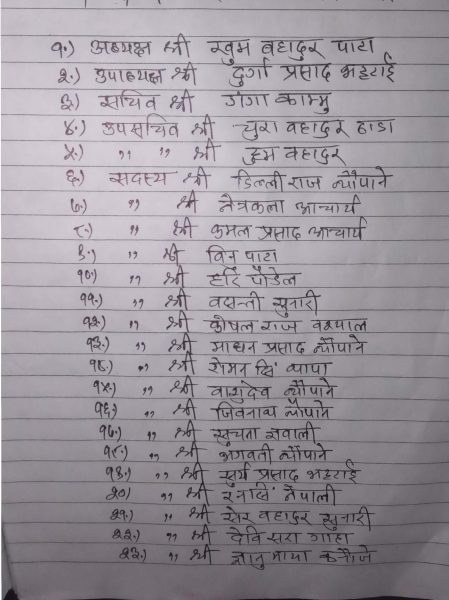 १.) अध्यक्ष श्री खुम बहादुर पाटा
२.) उपाध्यक्ष श्री दुर्गा प्रसाद भट्टराई
३.) सचिव श्री गंगा काम्मु
४.) उपसचिव श्री चुरा बहादुर ढाडा
५.) ,, ,, श्री हुम बहादुर
६.) सदस्य श्री डिल्लीराज न्यौपाने
७.) ,, श्री नेत्रकला आचार्य
८.) ,, श्री कमल प्रसाद आचार्य
९.) ,, श्री विन पाटा
१०.) ,, श्री हरि पौडेल
११.) ,, श्री वसन्ती सुनारी
१२.) ,, श्री कोपल राज
१३.) ,, श्री माधव प्रसाद न्यौपाने
१४.) ,, श्री रोमन सिं थापा
१५.) ,, श्री वाशुदेव न्यौपाने
१६.) ,, श्री जिवनाथ न्यौपाने
१७.) ,, श्री सुचना ज्ञवाली
१८.) ,, श्री भगवती न्यौपाने
१९.) ,, श्री सुर्य प्रसाद भट्टराई
२०) ,, श्री नेपाली
२१.) ,, श्री शेर बहादुर सुनारी
२२.) ,, श्री देविसरा गाहा
२३.) ,, श्री माया